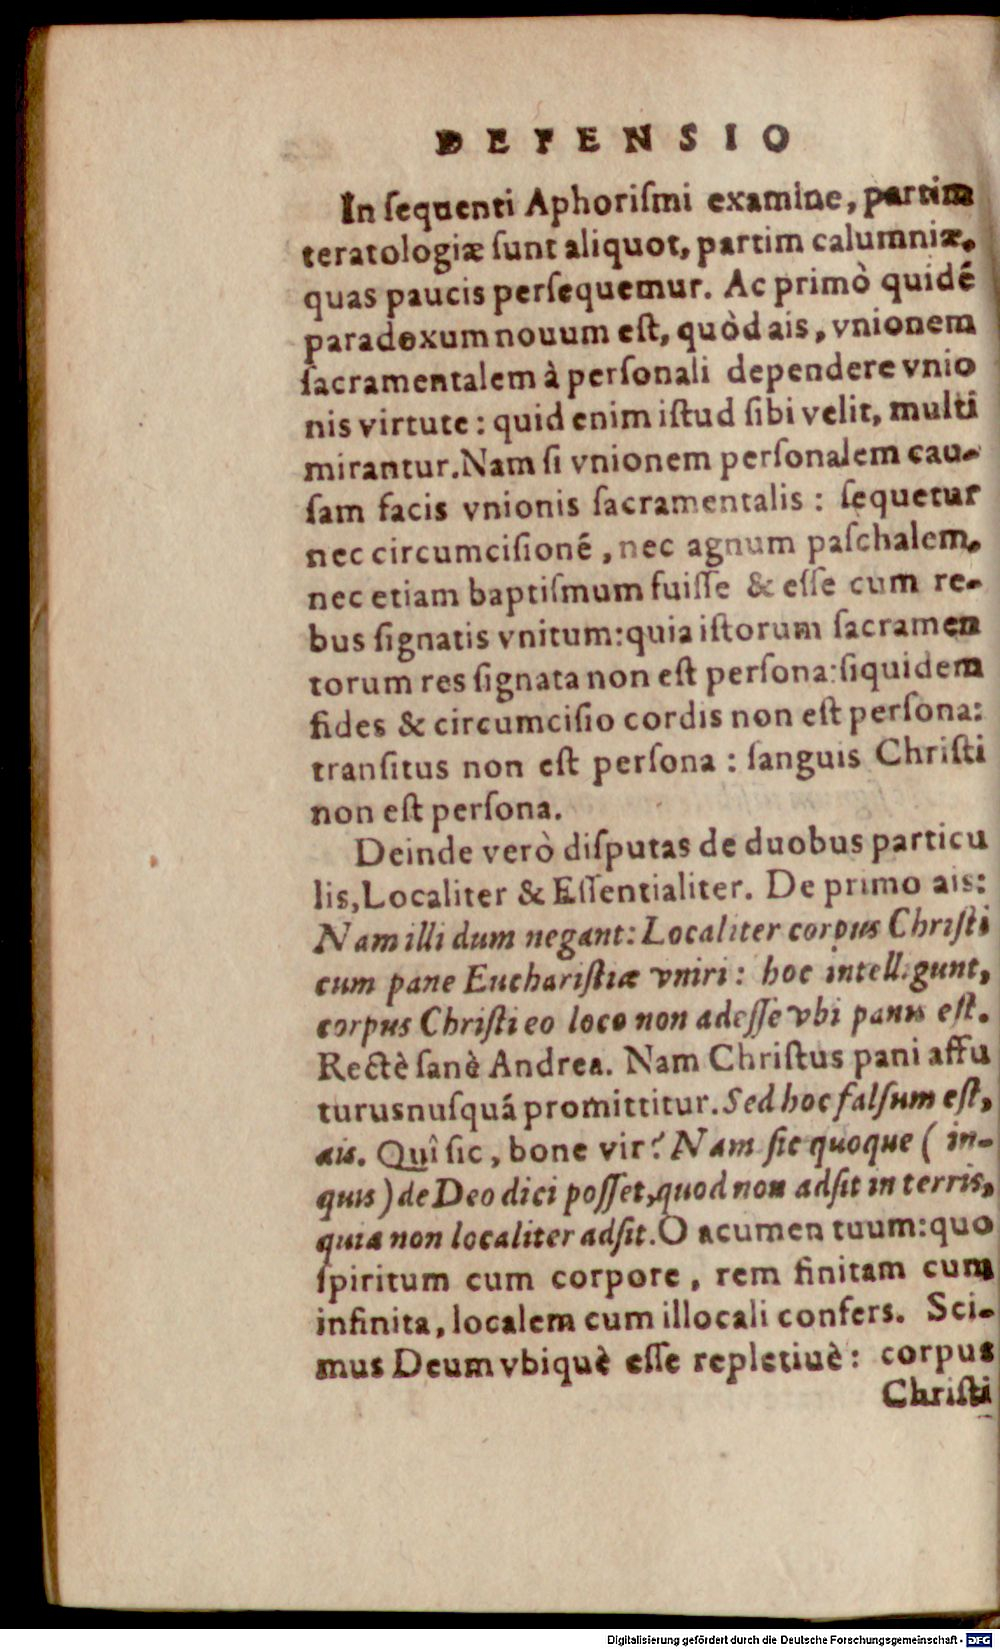 DEFENSIO
In ſequenti Aphoriſmi examine, partim
teratologiæ ſunt aliquot, partim calumniæ,
quas paucis perſequemur. Ac primò quidé
paradoxum nouum eſt, quòd ais, vnionem
ſacramentalem à perſonali dependere vnio
nis virtute: quid enim iſtud ſibi velit, multi
mirantur. Nam ſi vnionem perſonalem cau-
ſam facis vnionis ſacramentalis: ſequetur
nec circumciſioné, nec agnum paſchalem,
nec etiam baptiſmum fuiſſe & eſſe cum re-
bus ſignatis vnitum: quia iſtorum ſacramen
torum res ſignata non eſt perſona: ſiquidem
fides & circumciſio cordis non eſt perſona:
tranſitus non eſt perſona: ſanguis Chriſti
non eſt perſona.
Deinde verò diſputas de duobus particu
lis, Localiter & Eſſentialiter. De primo ais:
Nam illi dum negant: Localiter corpus Chriſti
cum pane Euchariſtiæ vniri: hoc intelligunt,
corpus Chriſti eo loco non adeſſe vbi panis eſt.
Rectè ſanè Andrea. Nam Chriſtus pani affu
turus nuſquá promittitur. Sed hoc falſum eſt,
ais. Quî ſic, bone vir? Nam ſic quoque (in-
quis) de Deo dici poſſet, quod non adſit in terris,
quia non localiter adſit. O acumen tuum: quo
ſpiritum cum corpore, rem finitam cum
infinita, localem cum illocali confers. Sci-
mus Deum vbiquè eſſe repletiuè: corpus
Chriſti
Digitalisierung gefördert durch die Deutsche Forschungsgemeinschaft - DFG